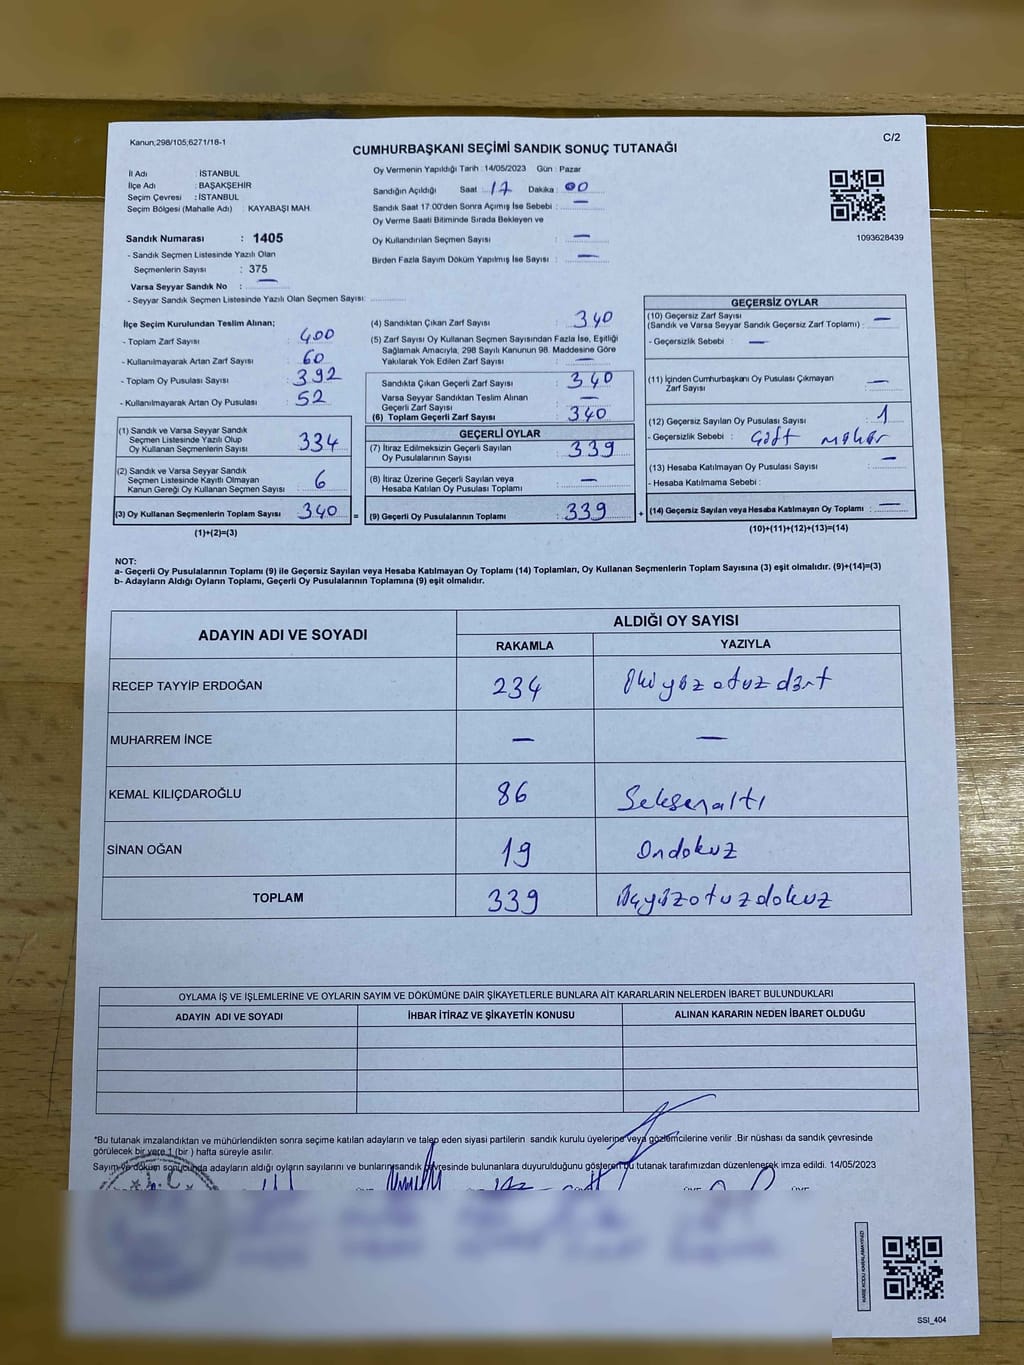 Kanun;298/105;6271/18-1
C/2
CUMHURBAŞKANI SEÇİMİ SANDIK SONUÇ TUTANAĞI
İl Adı : İSTANBUL
İlçe Adı : BAŞAKŞEHİR
Seçim Çevresi : İSTANBUL
Seçim Bölgesi (Mahalle Adı) : KAYABAŞI MAH.
Sandık Numarası : 1405
- Sandık Seçmen Listesinde Yazılı Olan
Seçmenlerin Sayısı : 375
Varsa Seyyar Sandık No : —
- Seyyar Sandık Seçmen Listesinde Yazılı Olan Seçmen Sayısı:
Oy Vermenin Yapıldığı Tarih : 14/05/2023 Gün : Pazar
Sandığın Açıldığı Saat : 17 Dakika : 00
Sandık Saat 17:00'den Sonra Açılmış İse Sebebi : —
Oy Verme Saati Bitiminde Sırada Bekleyen ve
Oy Kullandırılan Seçmen Sayısı : —
Birden Fazla Sayım Döküm Yapılmış İse Sayısı : —
1093628439
İlçe Seçim Kurulundan Teslim Alınan;
- Toplam Zarf Sayısı : 400
- Kullanılmayarak Artan Zarf Sayısı : 60
- Toplam Oy Pusulası Sayısı : 392
- Kullanılmayarak Artan Oy Pusulası : 52
(1) Sandık ve Varsa Seyyar Sandık
Seçmen Listesinde Yazılı Olup
Oy Kullanan Seçmenlerin Sayısı : 334
(2) Sandık ve Varsa Seyyar Sandık
Seçmen Listesinde Kayıtlı Olmayan
Kanun Gereği Oy Kullanan Seçmen Sayısı : 6
(3) Oy Kullanan Seçmenlerin Toplam Sayısı : 340
(1)+(2)=(3)
(4) Sandıktan Çıkan Zarf Sayısı : 340
(5) Zarf Sayısı Oy Kullanan Seçmen Sayısından Fazla İse, Eşitliği
Sağlamak Amacıyla, 298 Sayılı Kanunun 98. Maddesine Göre
Yakılarak Yok Edilen Zarf Sayısı : —
Sandıkta Çıkan Geçerli Zarf Sayısı : 340
Varsa Seyyar Sandıktan Teslim Alınan
Geçerli Zarf Sayısı : —
(6) Toplam Geçerli Zarf Sayısı : 340
GEÇERLİ OYLAR
(7) İtiraz Edilmeksizin Geçerli Sayılan
Oy Pusulalarının Sayısı : 339
(8) İtiraz Üzerine Geçerli Sayılan veya
Hesaba Katılan Oy Pusulası Toplamı : —
= (9) Geçerli Oy Pusulalarının Toplamı : 339
GEÇERSİZ OYLAR
(10) Geçersiz Zarf Sayısı
(Sandık ve Varsa Seyyar Sandık Geçersiz Zarf Toplamı) : —
- Geçersizlik Sebebi : —
(11) İçinden Cumhurbaşkanı Oy Pusulası Çıkmayan
Zarf Sayısı : —
(12) Geçersiz Sayılan Oy Pusulası Sayısı : 1
- Geçersizlik Sebebi : Çift mühür
(13) Hesaba Katılmayan Oy Pusulası Sayısı : —
- Hesaba Katılmama Sebebi :
+ (14) Geçersiz Sayılan veya Hesaba Katılmayan Oy Toplamı : —
(10)+(11)+(12)+(13)=(14)
NOT:
a- Geçerli Oy Pusulalarının Toplamı (9) ile Geçersiz Sayılan veya Hesaba Katılmayan Oy Toplamı (14) Toplamları, Oy Kullanan Seçmenlerin Toplam Sayısına (3) eşit olmalıdır. (9)+(14)=(3)
b- Adayların Aldığı Oyların Toplamı, Geçerli Oy Pusulalarının Toplamına (9) eşit olmalıdır.
ADAYIN ADI VE SOYADI ALDIĞI OY SAYISI
RAKAMLA YAZIYLA
RECEP TAYYİP ERDOĞAN 234 İkiyüzotuzdört
MUHARREM İNCE — —
KEMAL KILIÇDAROĞLU 86 Seksenaltı
SİNAN OĞAN 19 Ondokuz
TOPLAM 339 Üçyüzotuzdokuz
OYLAMA İŞ VE İŞLEMLERİNE VE OYLARIN SAYIM VE DÖKÜMÜNE DAİR ŞİKAYETLERLE BUNLARA AİT KARARLARIN NELERDEN İBARET BULUNDUKLARI
ADAYIN ADI VE SOYADI İHBAR İTİRAZ VE ŞİKAYETİN KONUSU ALINAN KARARIN NEDEN İBARET OLDUĞU
*Bu tutanak imzalandıktan ve mühürlendikten sonra seçime katılan adayların ve talep eden siyasi partilerin sandık kurulu üyelerine veya gözlemcilerine verilir .Bir nüshası da sandık çevresinde
görülecek bir yere 1 (bir ) hafta süreyle asılır.
Sayım ve döküm sonucunda adayların aldığı oyların sayılarını ve bunların sandık çevresinde bulunanlara duyurulduğunu gösteren bu tutanak tarafımızdan düzenlenerek imza edildi. 14/05/2023
T.C.
KARE KODU KARALAMAYINIZ!
SSI_404